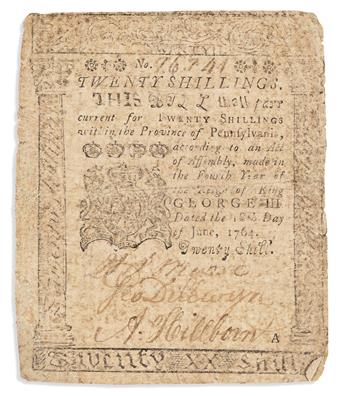 No. 16841
TWENTY SHILLINGS.
THIS BILL shall pass
current for TWENTY SHILLINGS
within the Province of Pennsylvania,
according to an Act
of Assembly, made in
the Fourth Year of
the Reign of King
GEORGE III
Dated the 18th Day
of June, 1764.
Twenty Shill.
Geo Dillwyn
A. Hillborn
A
Twenty XX Shill